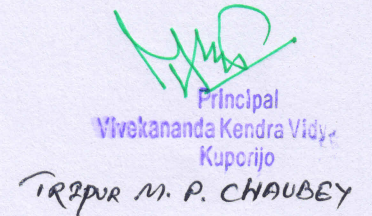 Principal
Vivekananda Kendra Vidy
Kuporijo
TRIPUR M. P. CHAUBEY